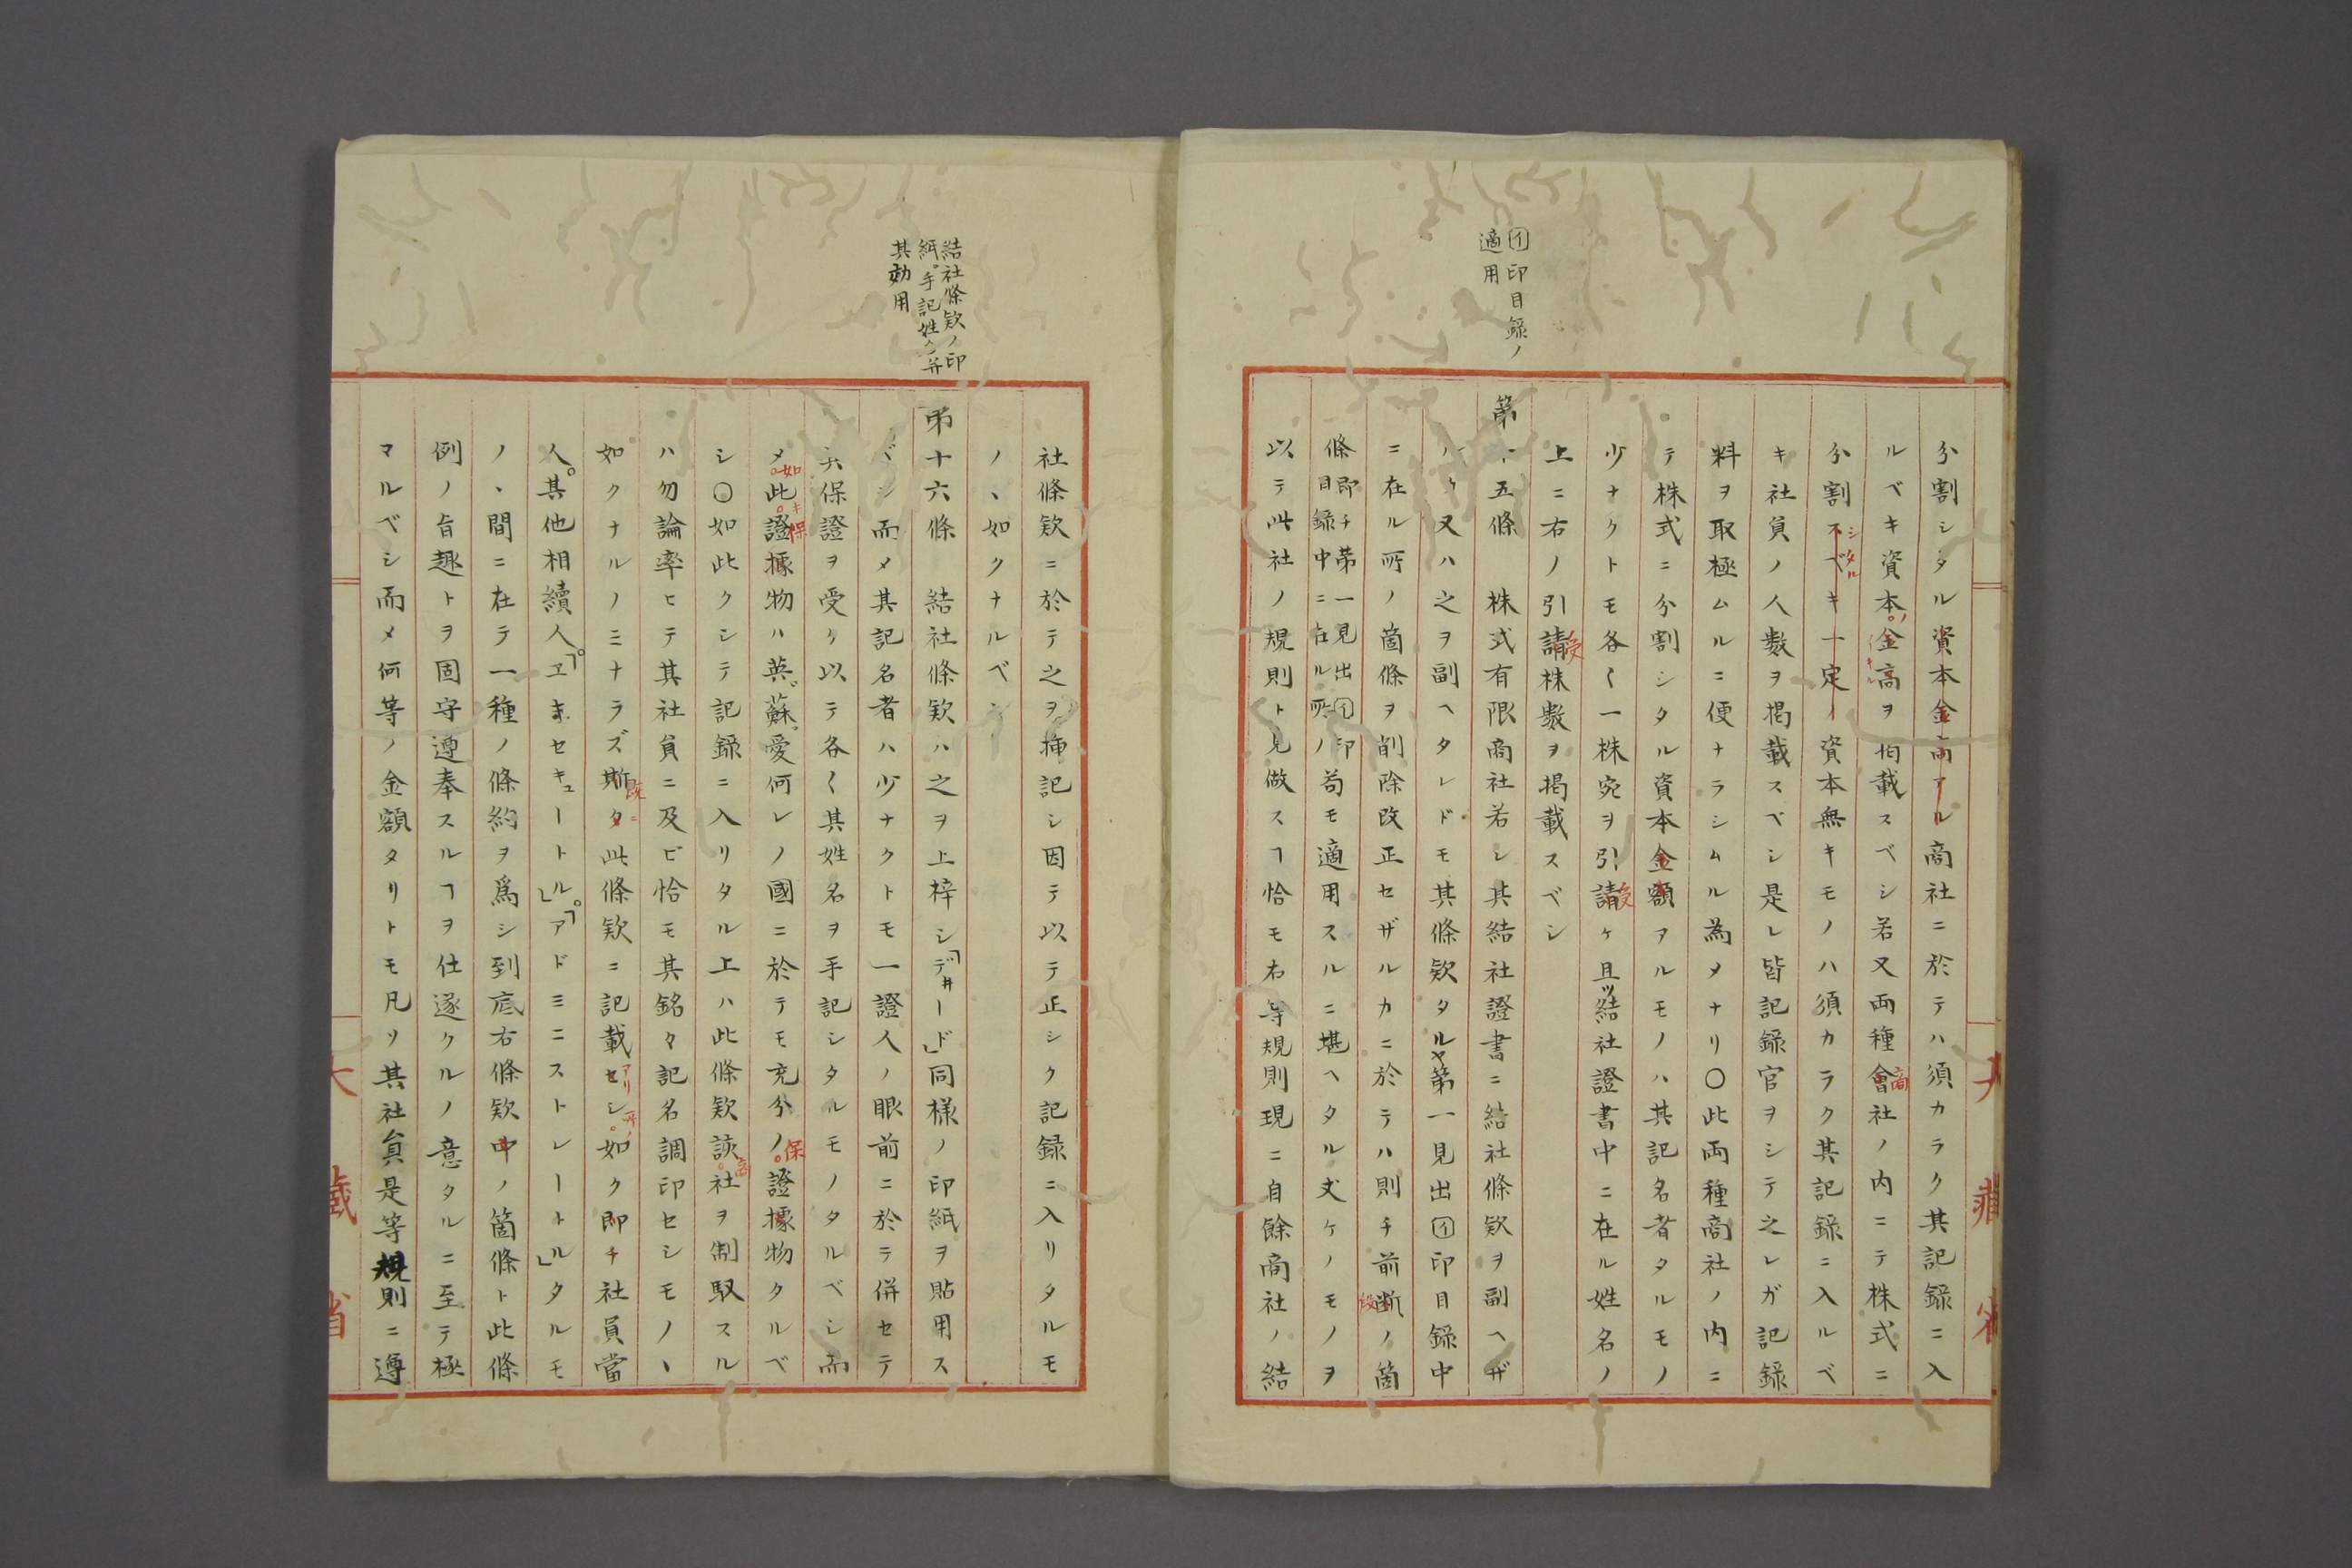 分割シタル資本金高アル商社ニ於テハ須カラク其記録ニ入
ルベキ資本ノ金高ヲ掲載スベシ若又両種會商社ノ内ニテ株式ニ
分割スベキシタル一定ノ資本無キモノハ須カラク其記録ニ入ルベ
キ社員ノ人數ヲ掲載スベシ是レ皆記録官ヲシテ之レガ記録
料ヲ取極ムルニ便ナラシムル為メナリ〇此両種商社ノ内ニ
テ株式ニ分割シタル資本金額アルモノハ其記名者タルモノ
少ナクトモ各〱一株宛ヲ引請受ケ且ツ結社證書中ニ在ル姓名ノ
上ニ右ノ引請受株數ヲ掲載スベシ
㋑印目録ノ
適用
第十五條 株式有限商社若シ其結社證書ニ結社條欵ヲ副ヘザ
ルカ又ハ之ヲ副ヘタレドモ其條欵タルヤ第一見出㋑印目録中
ニ在ル所ノ箇條ヲ削除改正セザルカニ於テハ則チ前断段ノ箇
條即チ第一見出㋑印
目録中ニ在ル所ノ苟モ適用スルニ堪ヘタル𠀋ケノモノヲ
以テ此社ノ規則ト見做スヿ恰モ右等規則現ニ自餘商社ノ結
社條欵ニ於テ之ヲ挿記シ因テ以テ正シク記録ニ入リタルモ
ノヽ如クナルベシ
結社條欵ノ印
紙。手記姓名并
其効用
第十六條 結社條欵ハ之ヲ上梓シ「デキード」同様ノ印紙ヲ貼用ス
ベシ而メ其記名者ハ少ナクトモ一證人ノ眼前ニ於テ併セテ
其保證ヲ受ケ以テ各〱其姓名ヲ手記シタルモノタルベシ而
メ如此キ保證據物ハ英。蘇。愛何レノ國ニ於テモ充分ノ保證據物タルベ
シ〇如此クシテ記録ニ入リタル上ハ此條欵該商社ヲ制馭スル
ハ勿論率ヒテ其社員ニ及ビ恰モ其銘々記名調印セシモノヽ
如クナルノミナラズ斯既タニ此條欵ニ記載セシアリ所ノ如ク即チ社員當
人。其他相續人。「エキセキュートル」。「アドミニストレートル」タルモ
ノヽ間ニ在テ一種ノ條約ヲ爲シ到底右條欵中ノ箇條ト此條
例ノ旨趣トヲ固守遵奉スルヿヲ仕遂クルノ意タルニ至テ極
マルベシ而メ何等ノ金額タリトモ凡ソ其社員是等規則ニ遵
大藏省